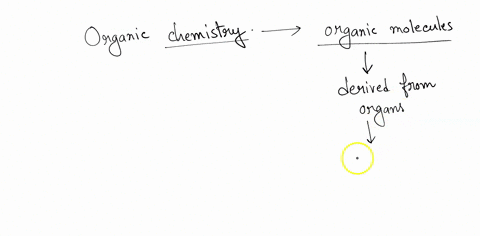 Organic chemistry. → organic molecules
↓
derived from
organs
↓